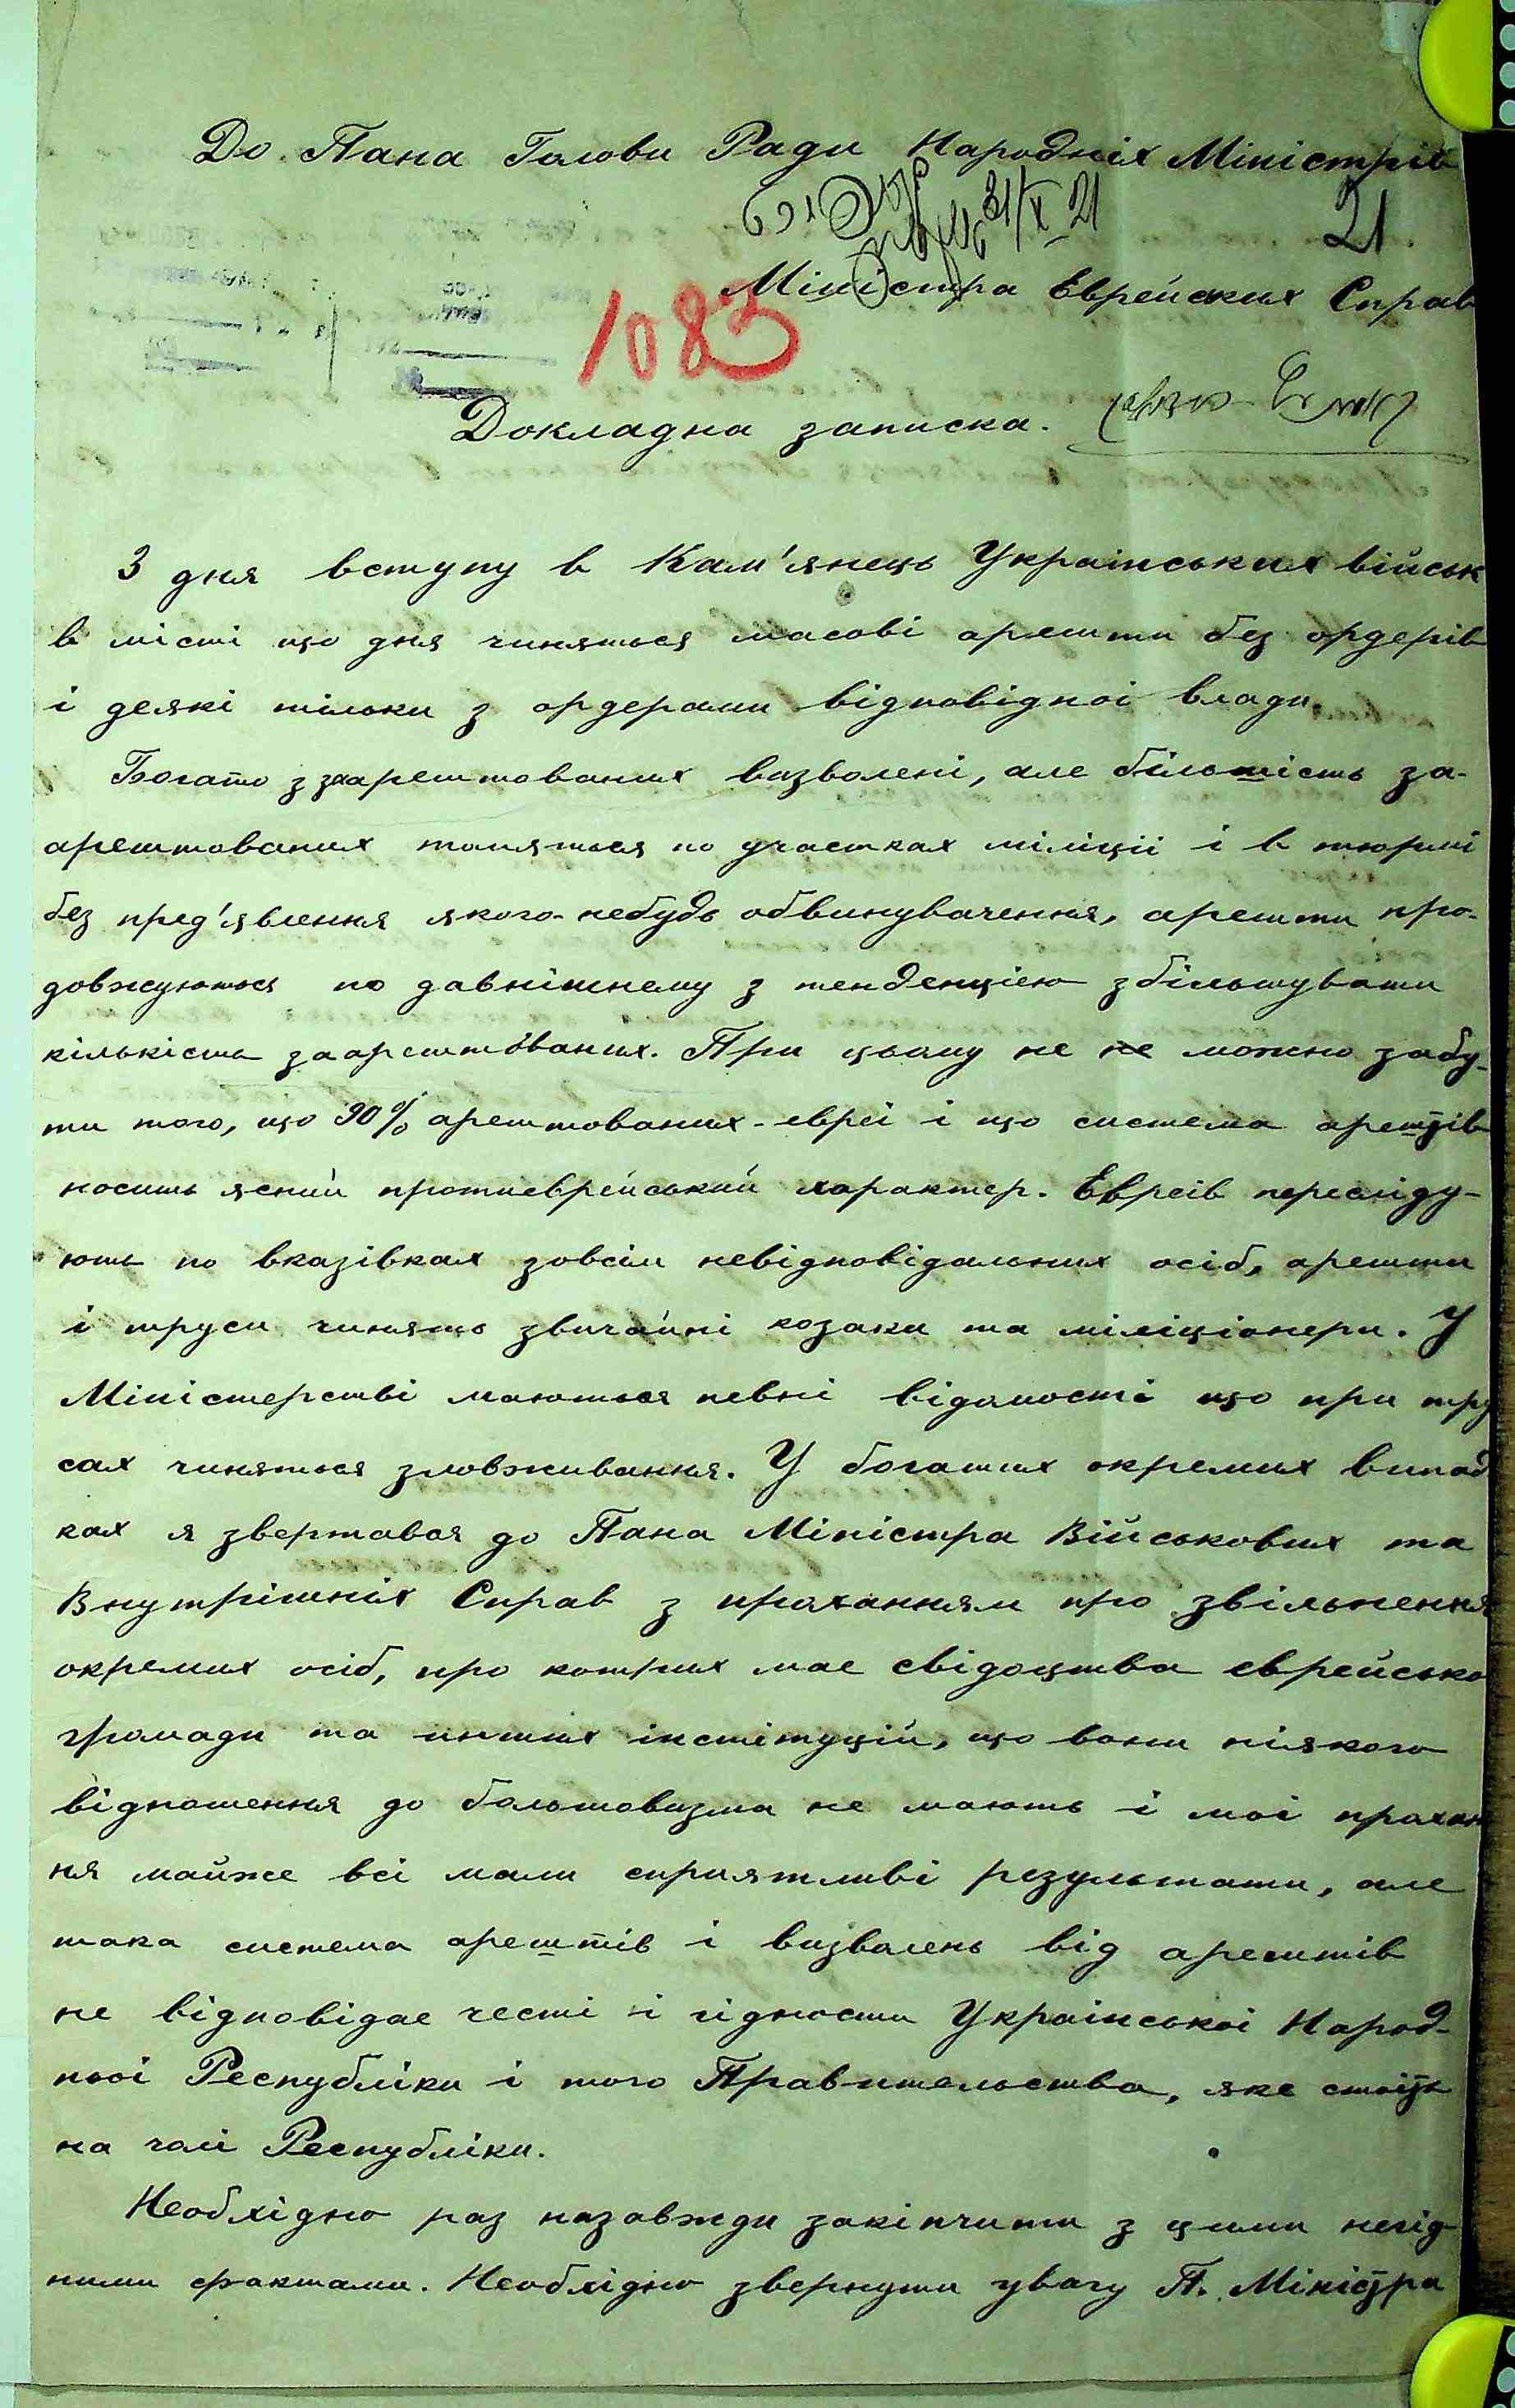 До Пана Голови Ради Народніх Міністрів
31/X 21
21
Міністра Еврейских Справ
1083
Докладна записка.
З дня вступу в Кам'янець Украінських військ
в місті що дня чиняться масові арешти без ордерів
і деякі тільки з ордерами відповідноі влади.
Богато з заарештованих визволені, але більшість за-
арештованих томяться по участках міліціі і в тюрмі
без пред'явлення якого-небудь обвинувачення, арешти про-
довжуються по давнішнему з тенденціею збільшувати
кількість заарештованих. При цьому не не можно забу-
ти того, що 90% арештованих - евреі і що система арештів
носить ясний протиеврейський характер. Евреів пересліду-
ють по вказівках зовсім невідповідальних осіб, арешти
і труси чинять звичайні козаки та міліціонери. У
Міністерстві маються певні відомості що при тру
сах чиняться зловживання. У богатих окремих випад
ках я звертався до Пана Міністра Військових та
Внутрішніх Справ з проханням про звільнення
окремих осіб, про котрих мае свідоцтва еврейсько
громади та инших інстітуцій, що вони ніякого
відношення до большовизма не мають і моі прохан
ня майже всі мали сприятливі результати, але
така система арештів і визволень від арештів
не відповідае честі і гідности Украінськоі Народ-
ноі Республіки і того Правительства, яке стоіть
на чолі Республіки.
Необхідно раз назавжди закінчити з цими негід-
ними фактами. Необхідно звернути увагу П. Міністра